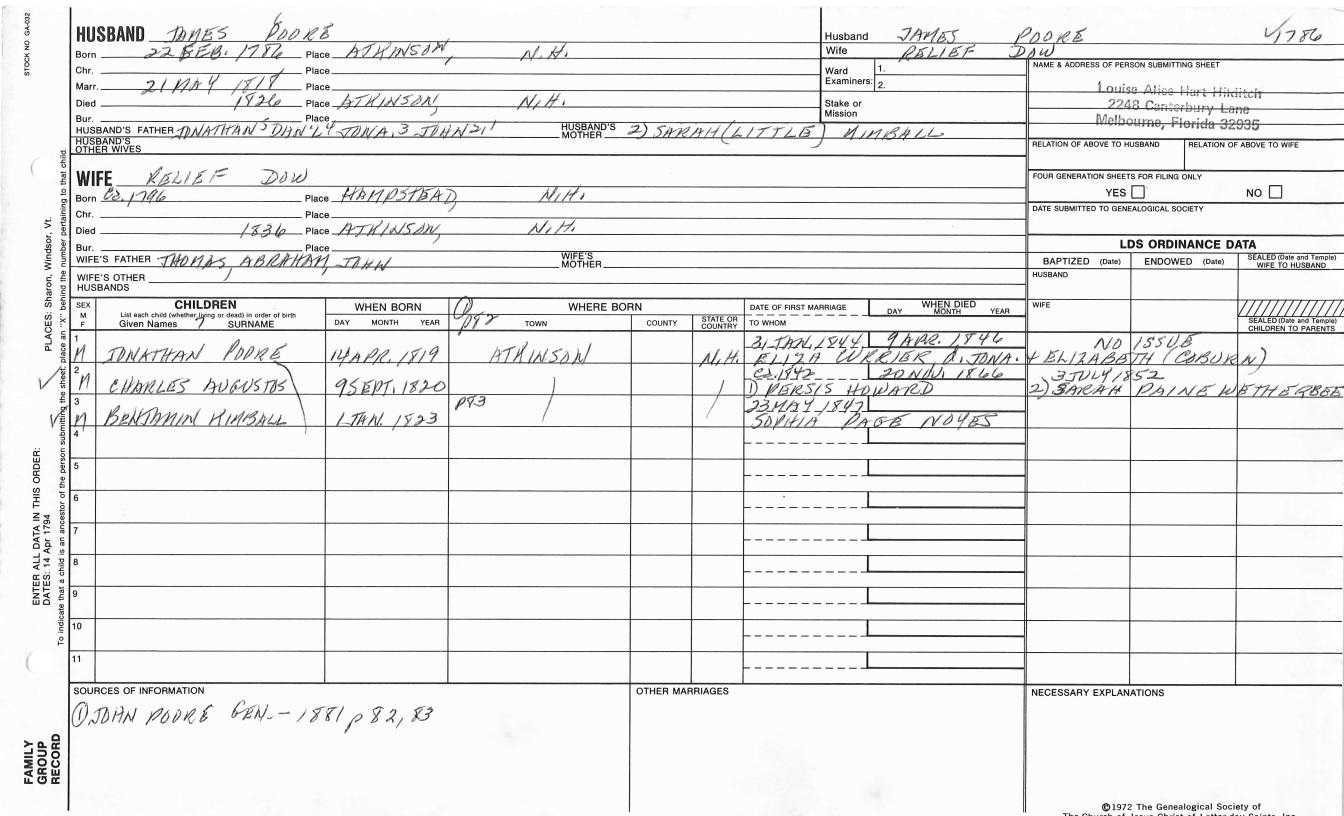 STOCK NO. GA-032
HUSBAND JAMES 6 POORE
Born 22 FEB. 1786 Place ATKINSON, N.H.
Chr. Place
Marr. 21 MAY 1817 Place
Died 1826 Place ATKINSON, N.H.
Bur. Place
HUSBAND'S FATHER JONATHAN 5 DAN'L 4 JONA. 3 JOHN 2 1 HUSBAND'S MOTHER 2) SARAH (LITTLE) KIMBALL
HUSBAND'S OTHER WIVES
WIFE RELIEF DOW
Born Ca. 1796 Place HAMPSTEAD, N.H.
Chr. Place
Died 1836 Place ATKINSON, N.H.
Bur. Place
WIFE'S FATHER THOMAS, ABRAHAM, JOHN WIFE'S MOTHER
WIFE'S OTHER HUSBANDS
Husband JAMES POORE 1786
Wife RELIEF DOW
Ward Examiners: 1.
2.
Stake or Mission
NAME & ADDRESS OF PERSON SUBMITTING SHEET
Louise Alice Hart Hilditch
2248 Canterbury Lane
Melbourne, Florida 32935
RELATION OF ABOVE TO HUSBAND RELATION OF ABOVE TO WIFE
FOUR GENERATION SHEETS FOR FILING ONLY
YES NO
DATE SUBMITTED TO GENEALOGICAL SOCIETY
LDS ORDINANCE DATA
BAPTIZED (Date) ENDOWED (Date) SEALED (Date and Temple) WIFE TO HUSBAND
HUSBAND
WIFE
SEALED (Date and Temple) CHILDREN TO PARENTS
SEX M F
CHILDREN
List each child (whether living or dead) in order of birth
Given Names 7 SURNAME
WHEN BORN
DAY MONTH YEAR
① p82 WHERE BORN
TOWN COUNTY STATE OR COUNTRY
DATE OF FIRST MARRIAGE
TO WHOM
WHEN DIED
DAY MONTH YEAR
1 M JONATHAN POORE 14 APR. 1819 ATKINSON N.H. 31 JAN. 1844 9 APR. 1846 NO ISSUE
ELIZA CURRIER, d. JONA. + ELIZABETH (COBURN)
2 M CHARLES AUGUSTUS 9 SEPT. 1820 Ca. 1842 20 NOV. 1866 3 JULY 1852
1) PERSIS HOWARD 2) SARAH PAINE WETHERBEE
3 M BENJAMIN KIMBALL 1 JAN. 1823 p83 23 MAY 1847
SOPHIA PAGE NOYES
4
5
6
7
8
9
10
11
SOURCES OF INFORMATION
① JOHN POORE GEN. - 1881 p 82, 83
OTHER MARRIAGES
NECESSARY EXPLANATIONS
©1972 The Genealogical Society of
The Church of Jesus Christ of Latter-day Saints, Inc.
PLACES: Sharon, Windsor, Vt.
To indicate that a child is an ancestor of the person submitting the sheet, place an "X" behind the number pertaining to that child.
ENTER ALL DATA IN THIS ORDER:
DATES: 14 Apr 1794
FAMILY
GROUP
RECORD